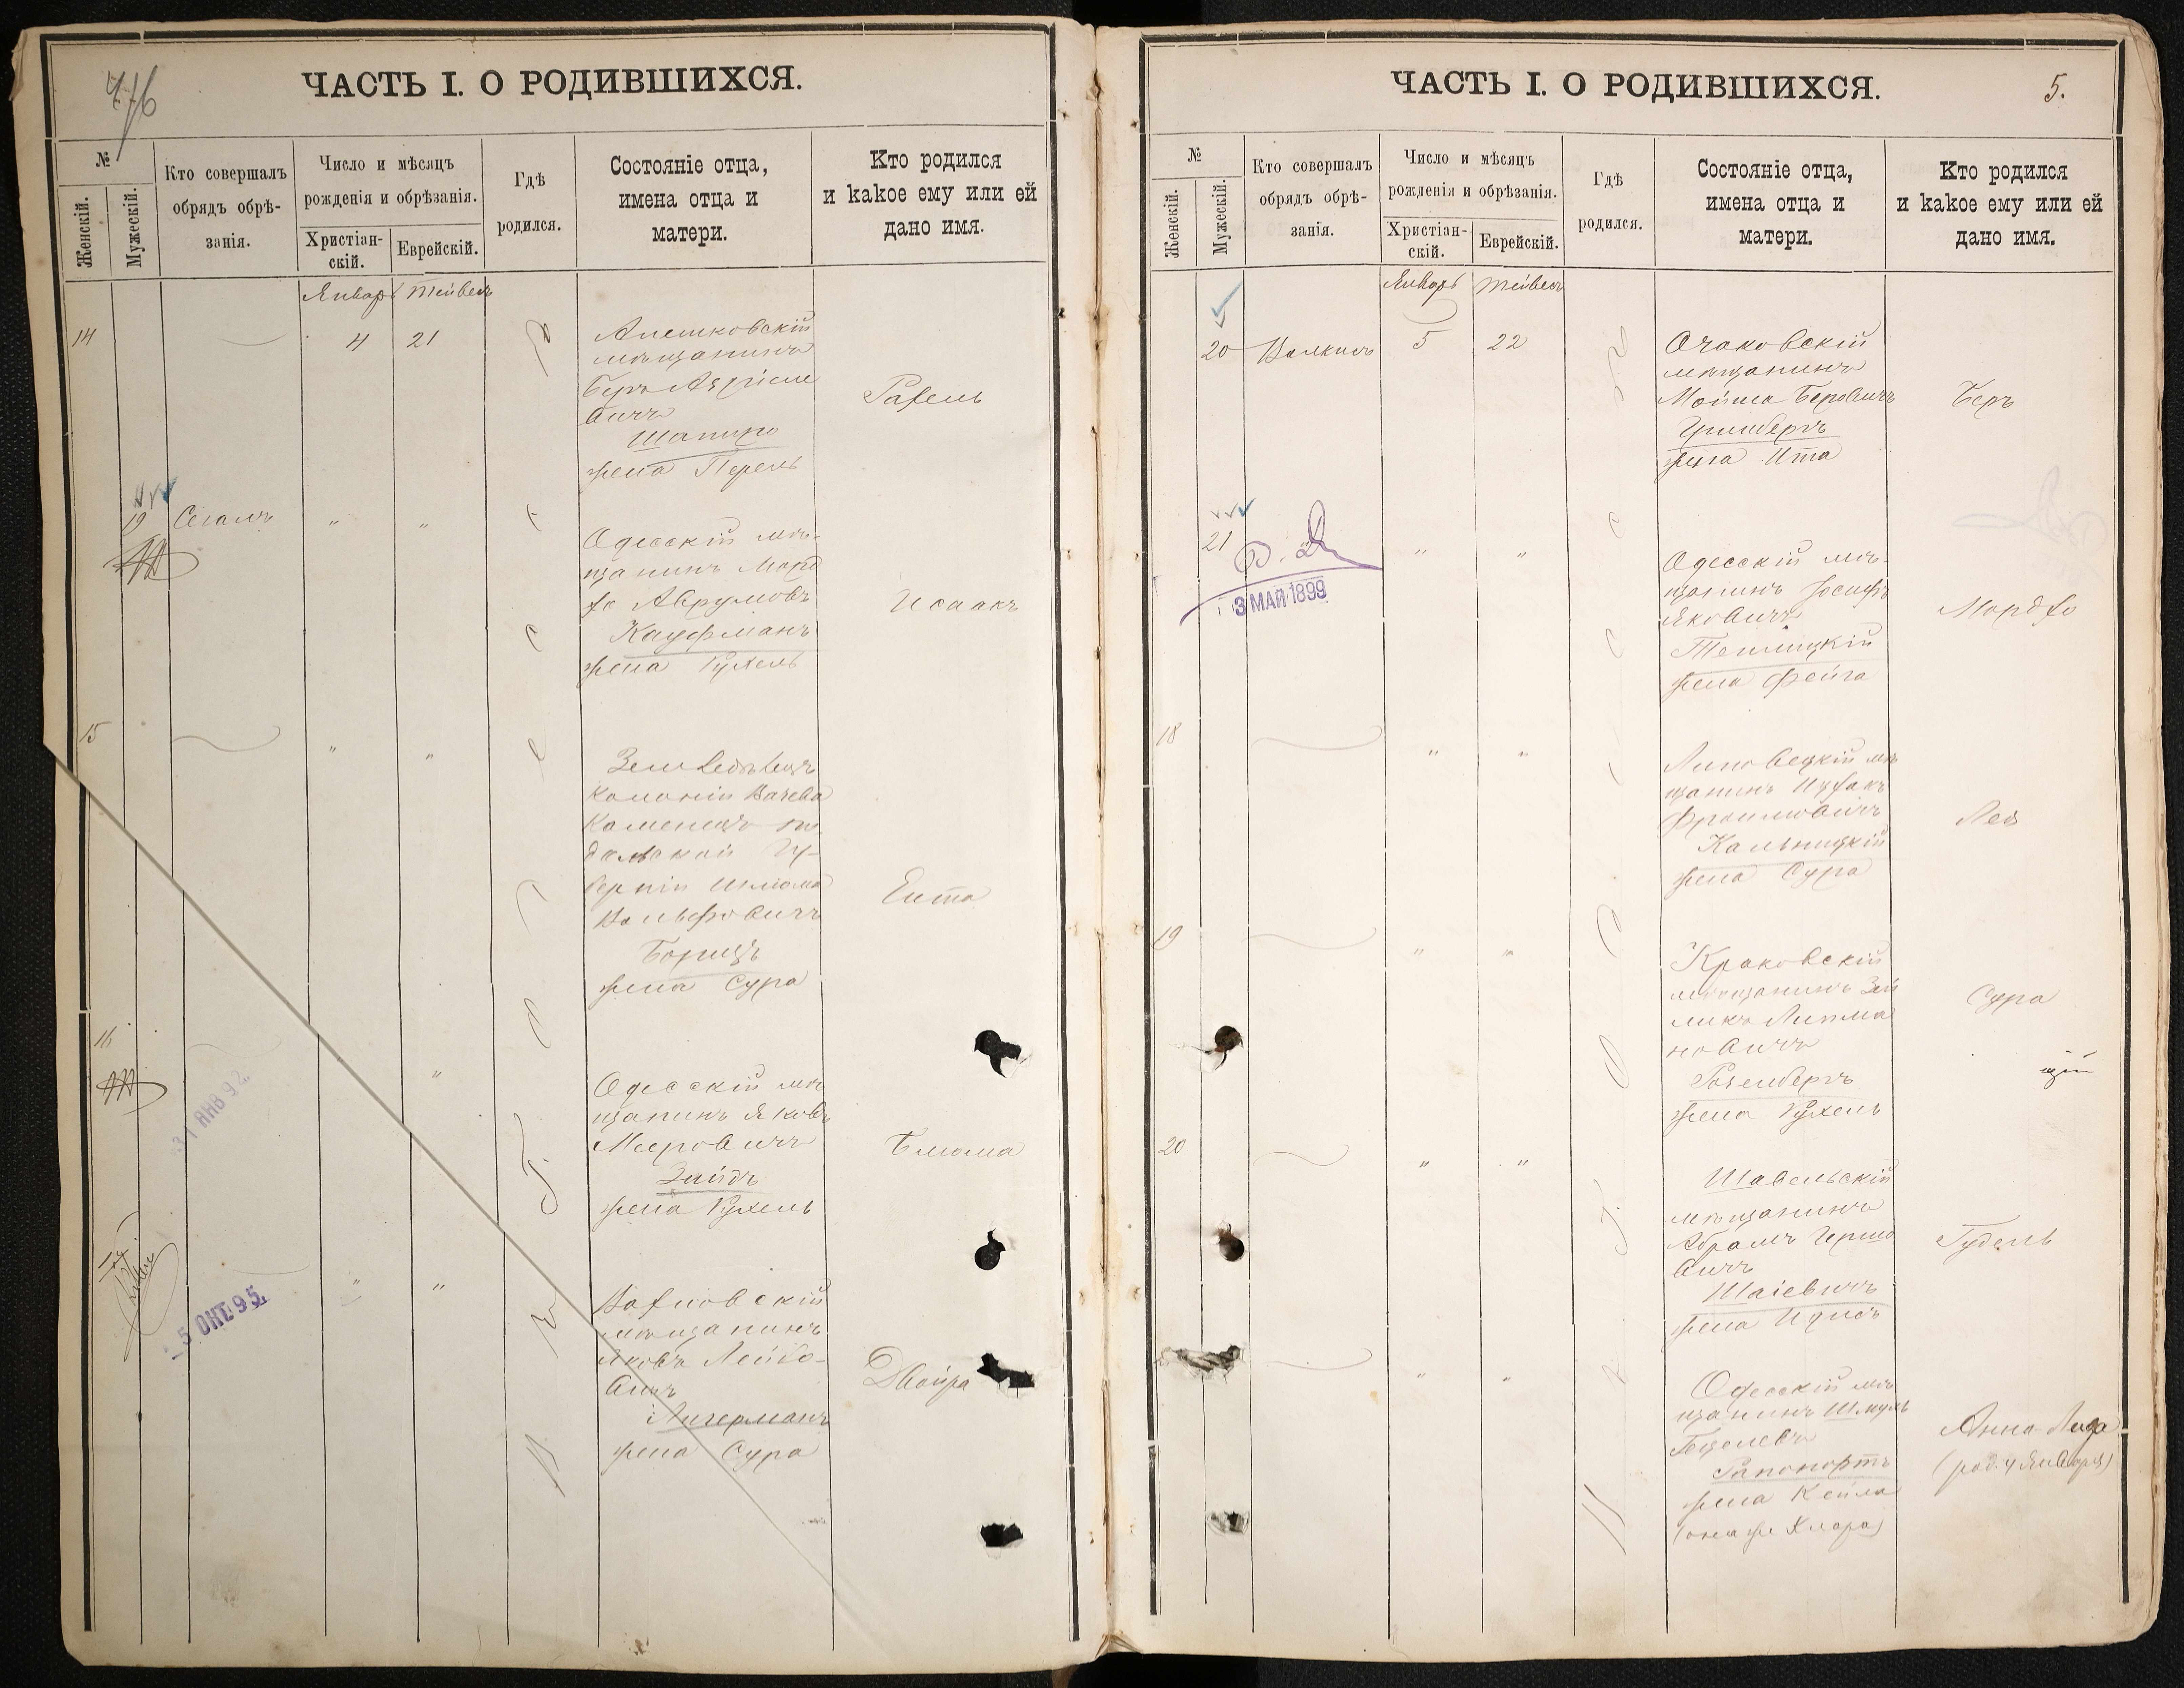 476
ЧАСТЬ I. О РОДИВШИХСЯ.
№
Женскій.
Мужескій.
Кто совершалъ
обрядъ обрѣ-
занія.
Число и мѣсяцъ
рожденія и обрѣзанія.
Христіан-
скій.
Еврейскій.
Гдѣ
родился.
Состояніе отца,
имена отца и
матери.
Кто родился
и какое ему или ей
дано имя.
Январь Тейвесъ
14
4 21
Алешковскій
мѣщанинъ
Беръ
вичъ
Шапиро
жена Перель
Рахель
19 Сегалъ " "
Одесскій мѣ-
щанинъ Морд
хо Аврумовъ
Кауфманъ
жена Рухель
Исаакъ
15 " "
Земледѣлецъ
колоніи
Каменецъ По
дольской Гу-
берніи Шлиома
Вольфовичъ
Борицъ
жена Сура
Ента
16 "
31 ЯНВ 92
Одесскій мѣ
щанинъ Яковъ
Мееровичъ
Зайдъ
жена Рухель
Блюма
17 " "
5 ОКТ. 95.
мѣщанинъ
Яковъ Лейбо-
вичъ
Лихерманъ
жена Сура
Двойра
ЧАСТЬ I. О РОДИВШИХСЯ.
5.
№
Женскій.
Мужескій.
Кто совершалъ
обрядъ обрѣ-
занія.
Число и мѣсяцъ
рожденія и обрѣзанія.
Христіан-
скій.
Еврейскій.
Гдѣ
родился.
Состояніе отца,
имена отца и
матери.
Кто родился
и какое ему или ей
дано имя.
Январь Тейвесъ
20 Валкинъ 5 22
Очаковскій
мѣщанинъ
Мойша Беровичъ
Гринбергъ
жена Ита
Беръ
21 " "
3 МАЙ 1899
Одесскій мѣ-
щанинъ Іосифъ
Яковичъ
Теплицкій
жена Фейга
Мордхо
18 " "
Липовецкій мѣ
щанинъ Ицхакъ
Фроимовичъ
Кальницкій
жена Сура
Лея
19 " "
Краковскій
мѣщанинъ Зей
ликъ Липма
новичъ
Розенбергъ
жена Рухель
Сура
щій
20 " "
Шавельскій
мѣщанинъ
Абрамъ Гершо
вичъ
Шаіевичъ
жена
Гудель
" "
Одесскій мѣ
щанинъ Шмуль
Гецелевъ
Рапопортъ
жена Кейла
(она же Клара)
Анна-Лида
(род. 4 Января)